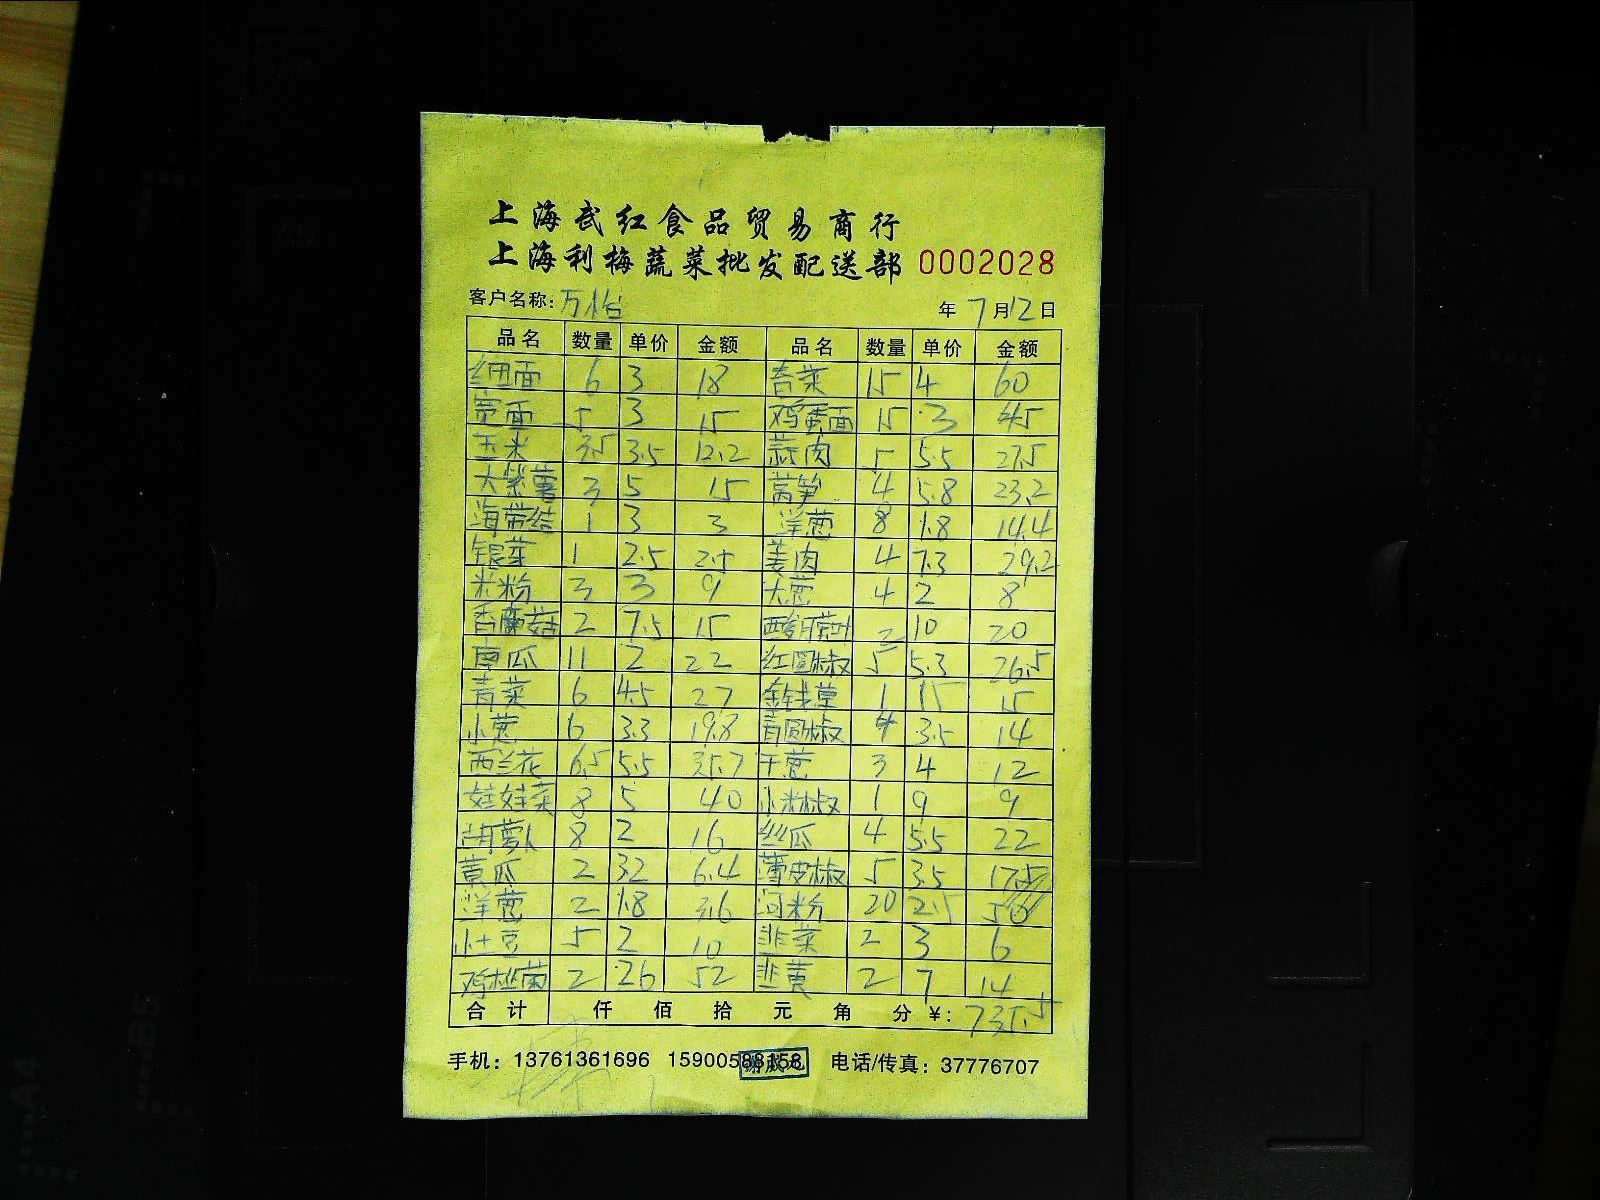 上海武红食品贸易商行
上海利梅蔬菜批发配送部 0002028
客户名称: 万怡 年 7月12日
品名 数量 单价 金额 品名 数量 单价 金额
细面 6 3 18 香菜 15 4 60
宽面 5 3 15 鸡蛋面 15 3 45
玉米 3.5 3.5 12.2 蒜肉 5 5.5 27.5
大紫薯 3 5 15 莴笋 4 5.8 23.2
海带结 1 3 3 洋葱 8 1.8 14.4
银芽 1 2.5 2.5 姜肉 4 7.3 29.2
米粉 3 3 9 大葱 4 2 8
香蘑菇 2 7.5 15 2 10 20
南瓜 11 2 22 红圆椒 5 5.3 26.5
青菜 6 4.5 27 金钱草 1 15 15
小葱 6 3.3 19.8 青圆椒 4 3.5 14
西兰花 6.5 5.5 35.7 干葱 3 4 12
娃娃菜 8 5 40 小米椒 1 9 9
胡萝卜 8 2 16 丝瓜 4 5.5 22
黄瓜 2 3.2 6.4 薄皮椒 5 3.5 17.5
洋葱 2 1.8 3.6 河粉 20 2.5 50
小土豆 5 2 10 韭菜 2 3 6
2 26 52 韭黄 2 7 14
合计 仟 佰 拾 元 角 分 ¥: 735.5
手机: 13761361696 15900588158 电话/传真: 37776707